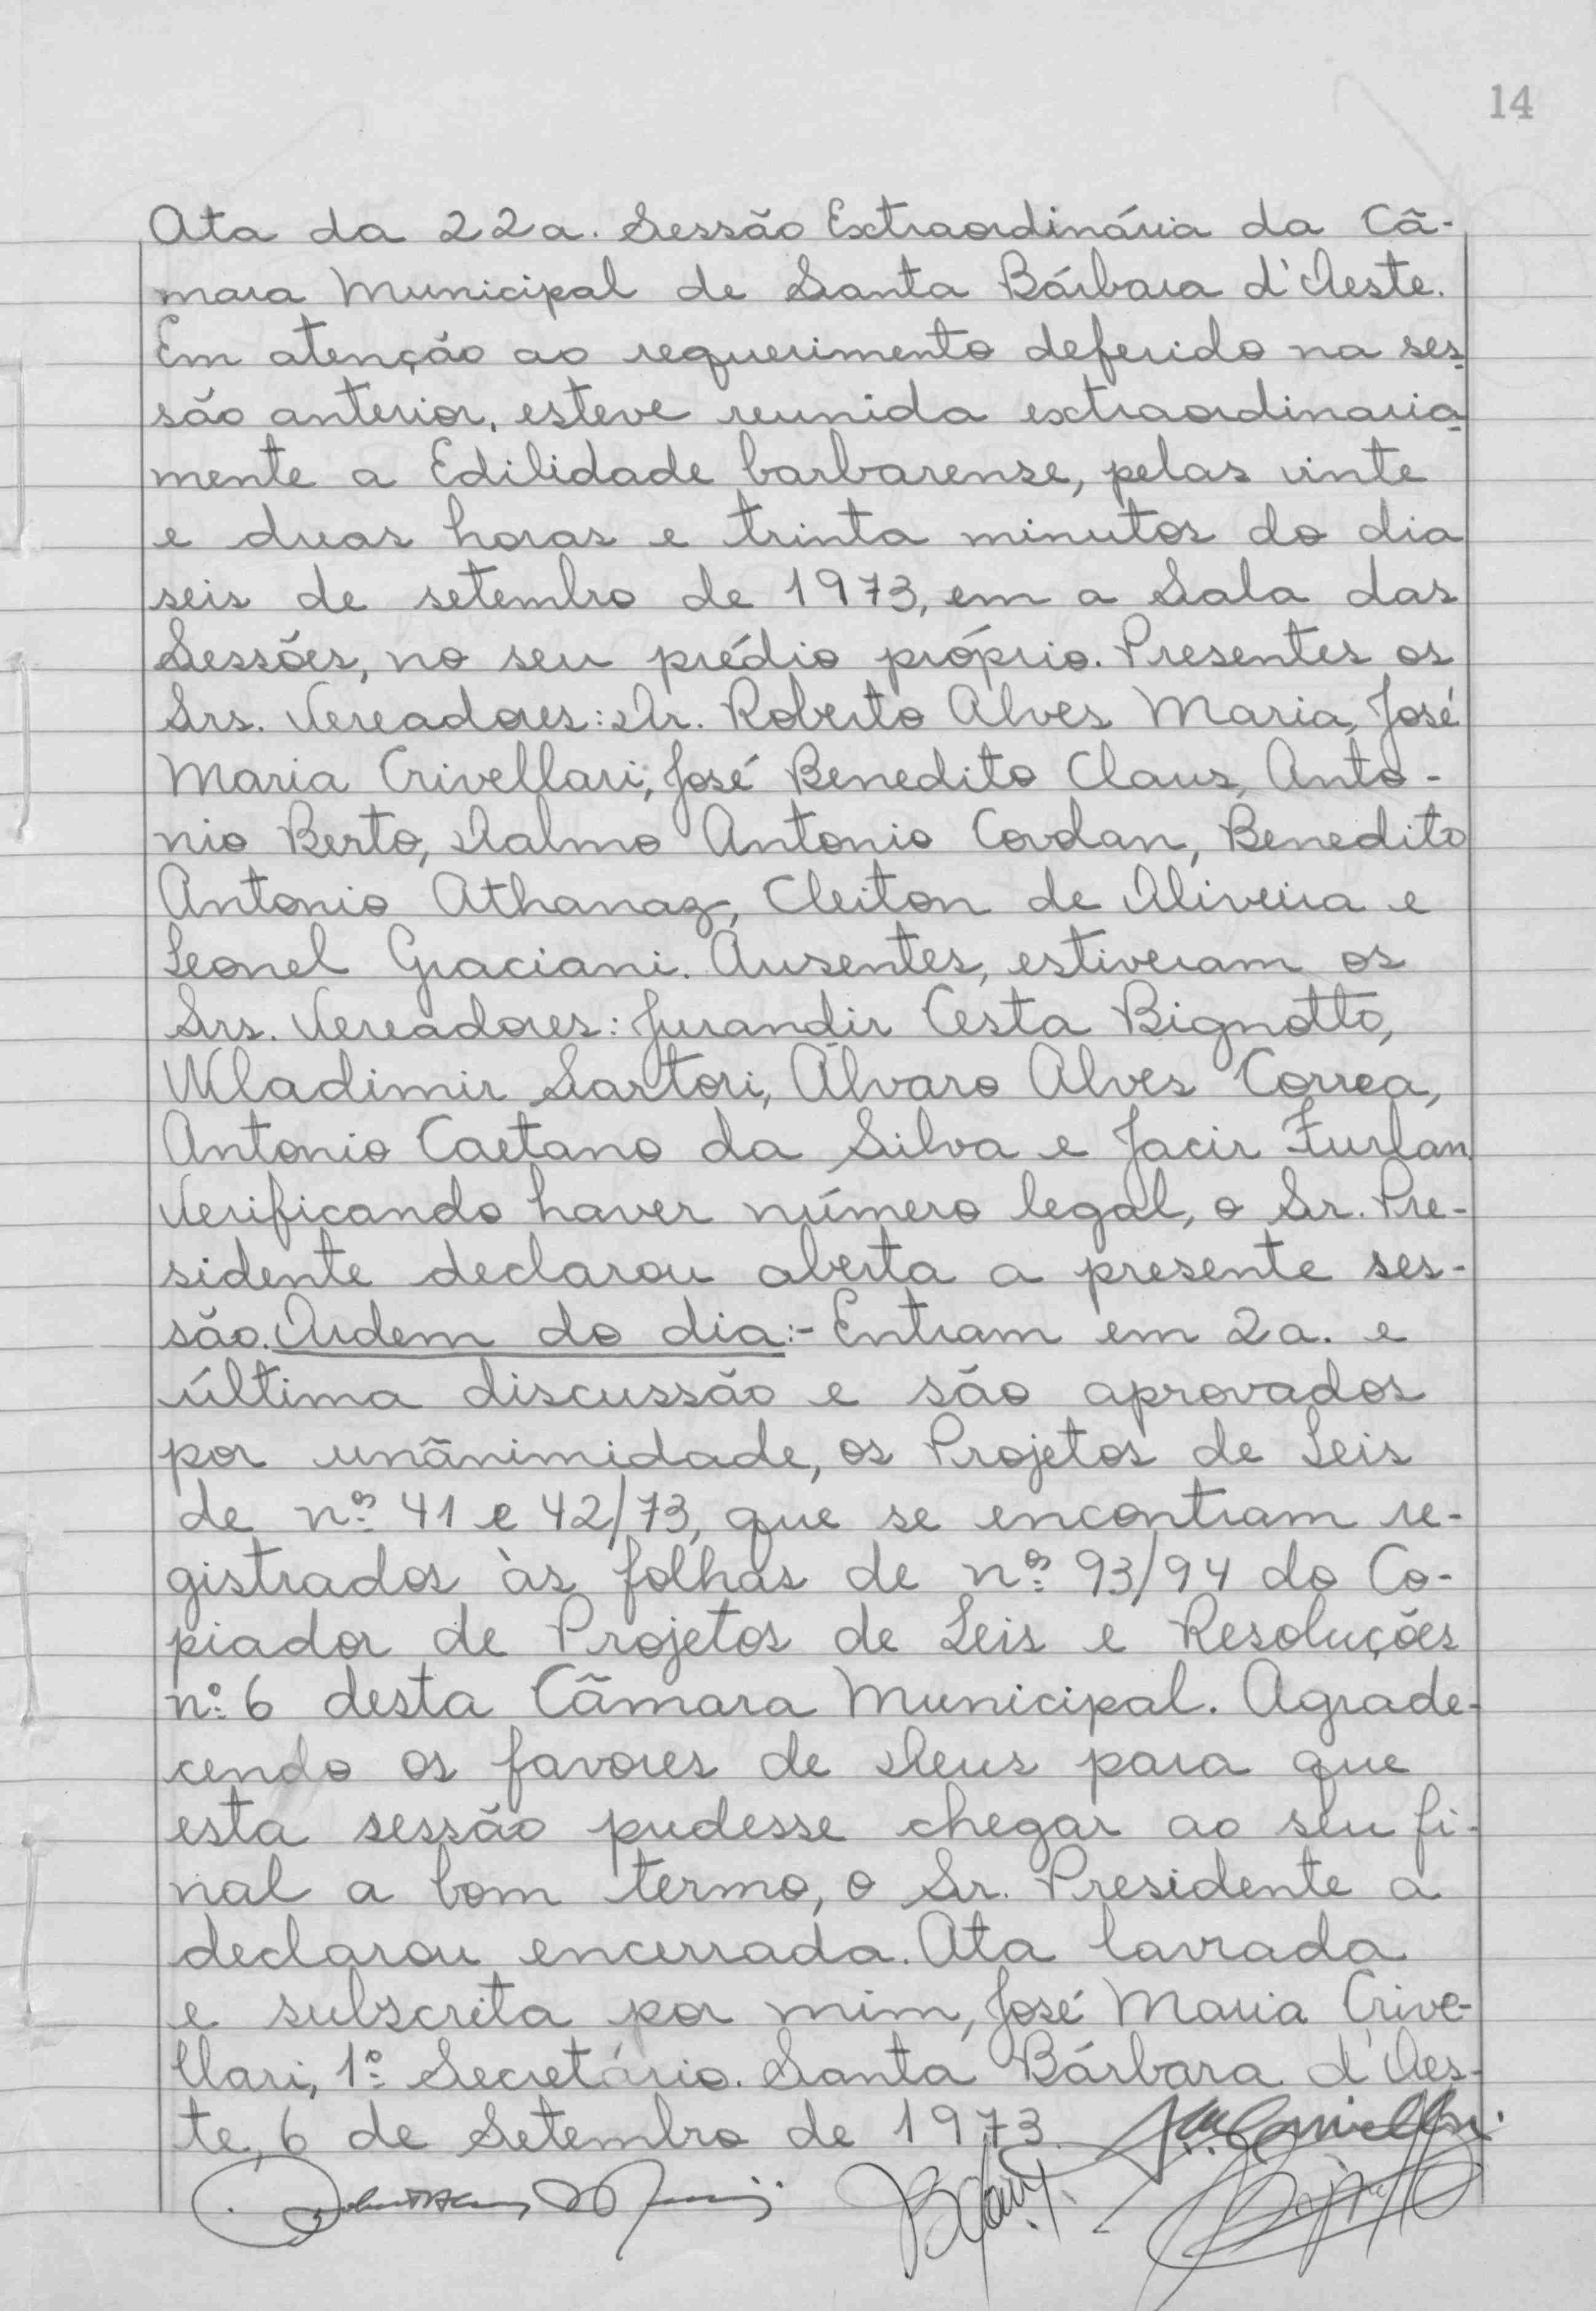 14
Ata da 22a. Sessão Extraordinária da Câ-
mara Municipal de Santa Bárbara d'Oeste.
Em atenção ao requerimento deferido na ses-
são anterior, esteve reunida extraordinaria-
mente a Edilidade barbarense, pelas vinte
e duas horas e trinta minutos do dia
seis de setembro de 1973, em a Sala das
Sessões, no seu prédio próprio. Presentes os
Srs. Vereadores: Dr. Roberto Alves Maria, José
Maria Crivellari, José Benedito Claus, Anto-
nio Berto, Dalmo Antonio Covolan, Benedito
Antonio Athanaz, Cleiton de Oliveira e
Leonel Graciani. Ausentes, estiveram os
Srs. Vereadores: Jurandir Cesta Bignotto,
Wladimir Sartori, Álvaro Alves Correa,
Antonio Caetano da Silva e Jacir Furlan.
Verificando haver número legal, o Sr. Pre-
sidente declarou aberta a presente ses-
são. Ordem do dia:- Entram em 2a. e
última discussão e são aprovados
por unânimidade, os Projetos de Leis
de nºs 41 e 42/73, que se encontram re-
gistrados às folhas de nºs 93/94 do Co-
piador de Projetos de Leis e Resoluções
nº 6 desta Câmara Municipal. Agrade-
cendo os favores de Deus para que
esta sessão pudesse chegar ao seu fi-
nal a bom termo, o Sr. Presidente a
declarou encerrada. Ata lavrada
e subscrita por mim, José Maria Crive-
llari, 1º Secretário. Santa Bárbara d'Oes-
te, 6 de Setembro de 1973.